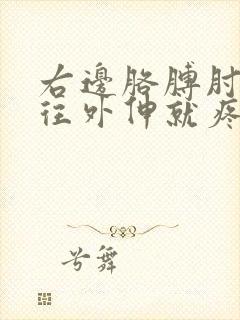 右邊胳膊肘
往外伸就疼
兮舞